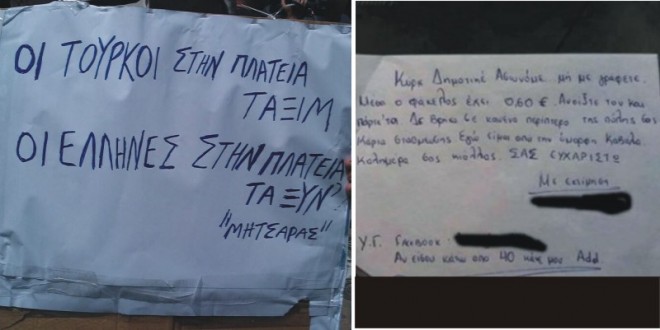 ΟΙ ΤΟΥΡΚΟΙ ΣΤΗΝ ΠΛΑΤΕΙΑ
ΤΑΞΙΜ
ΟΙ ΕΛΛΗΝΕΣ ΣΤΗΝ ΠΛΑΤΕΙΑ
ΤΑ ΞΥΝ'
"ΜΗΤΣΑΡΑΣ"
Κύριε Δημοτικέ Αστυνόμε μη με γράφετε.
Μέσα ο φάκελος έχει 0,60 €. Ανοίξτε τον και
πάρτε τα. Δε βρήκα σε κανένα περίπτερο της πόλης σας
κάρτα στάθμευσης Εγώ είμαι από την όμορφη Καβάλα
Καλημέρα σας κιόλλας. ΣΑΣ ΕΥΧΑΡΙΣΤΩ
Με εκτίμηση
Υ.Γ. Facebook
Αν είσαι κάτω από 40 κάνε μου Add